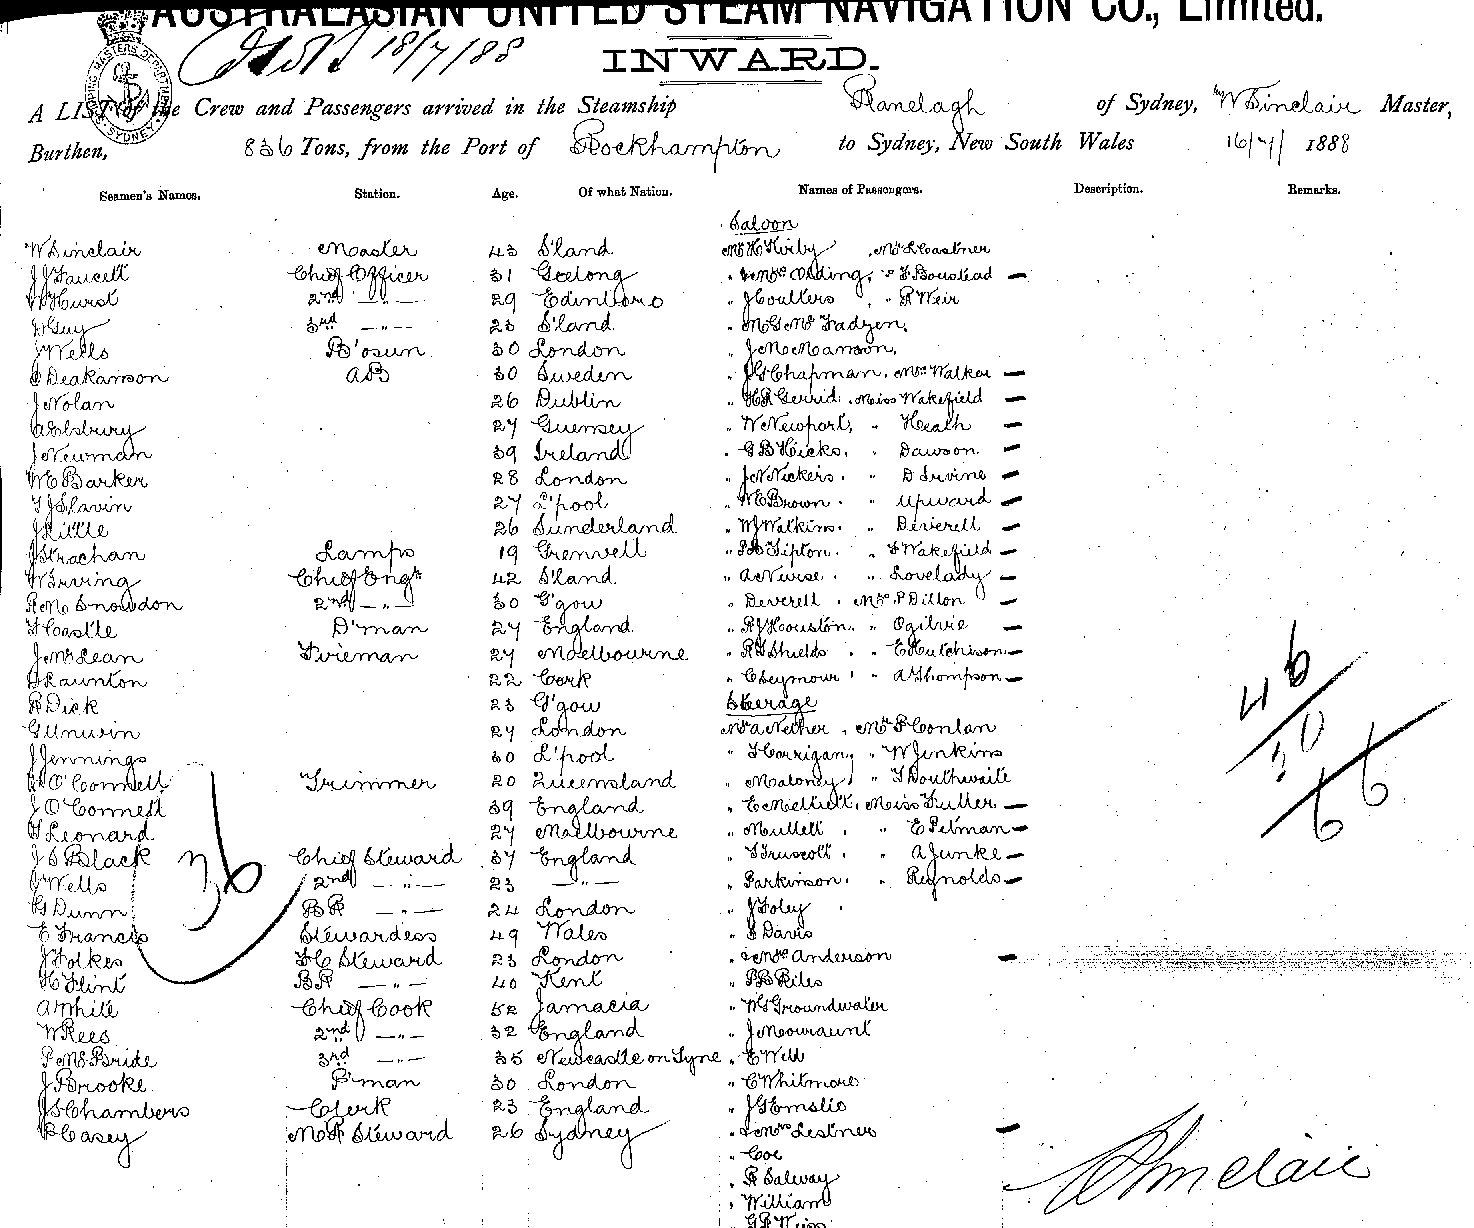 AUSTRALASIAN UNITED STEAM NAVIGATION CO., Limited.
18/7/88
INWARD.
SHIPPING MASTERS DEPARTMENT SYDNEY
A LIST of the Crew and Passengers arrived in the Steamship Ranelagh of Sydney, W Sinclair Master,
Burthen, 836 Tons, from the Port of Rockhampton to Sydney, New South Wales 16/7/ 1888
Seamen's Names. Station. Age. Of what Nation. Names of Passengers. Description. Remarks.
Saloon
W Sinclair Master 43 S'land Mr H Kirby Mr R Castner
J J Faucett Chief Officer 31 Geelong " & Mrs Odding, " F Boustead —
W Hurst 2nd —"— 29 Edinboro " J Coulters, " R Weir
W Guy 3rd —"— 23 S'land " M G Mc Fadzen,
J Wells B'osun 30 London " J M Manson,
Deakanson AB 30 Sweden " J G Chapman, Mrs Walker —
J Nolan 26 Dublin " H R Gerrid, Miss Wakefield —
A Elsbury 27 Guernsey " W Newport, " Heath —
J Newman 39 Ireland " G B Hicks, " Dawson —
W E Barker 28 London " J N Nickers, " D Irvine —
T J Slavin 27 L'pool " W E Brown, " Upward —
J Kittle 26 Sunderland " W J Watkins, " Deverell —
J Strachan Lamps 19 Grenvell " Tipton, " F Wakefield —
W Irving Chief Engr 42 S'land " A Nurse, " Lovelady —
R M Snowdon 2nd —"— 30 G'gow " Deverell, Mr P Dillon —
F Castle D'man 27 England " R J Houston, " Ogilvie —
J McLean Fireman 27 Maelbourne " R G Shields " E Hutchison —
Raunton 22 Cork " C Seymour, " A Thompson —
R Dick 23 G'gow Steerage
G Unwin 27 London Mr A Nether, Mr P Conlan
J Jennings 30 L'pool " F Corrigan, " W Jenkins
O'Connell Trimmer 20 Queensland " Maloney, " T Douthwaite
J O'Connell 39 England " E Mellett, Miss Fuller —
F Leonard 27 Maelbourne " Mullett, " E Pitman —
J S Black Chief Steward 37 England " F Truscott, " A Junke —
J Wells 2nd —"— 23 —"— " Parkinson, " Reynolds —
G Dunn BR —"— 24 London " J Foley
E Francis Stewardess 49 Wales " S Davis
J Folkes FC Steward 23 London " & Mrs Anderson —
H Flint BR —"— 40 Kent " P B Riles
A White Chief Cook 52 Jamacia " W S Groundwater
W Rees 2nd —"— 32 England " J Mouraunt
P McBride 3rd —"— 35 Newcastle on Tyne " E Well
J Brooke P'man 30 London " C Whitmore
J S Chambers Clerk 23 England " J G Emslie
P Casey M R Steward 26 Sydney " & Mrs Lestner —
" Coe
" R Salway
" William
36
46
20
66
W Sinclair